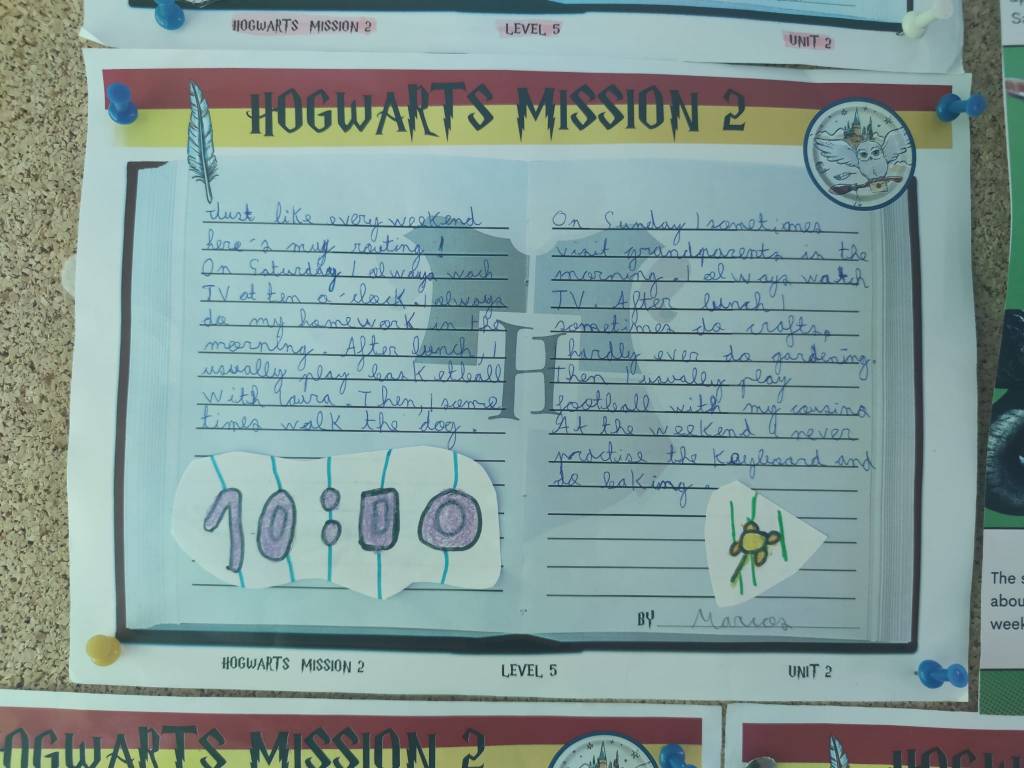 HOGWARTS MISSION 2 LEVEL 5 UNIT 2
HOGWARTS MISSION 2
Just like every weekend
here's my routing!
On Saturday I always wach
TV at ten o'clock. I always
do my homework in the
morning. After lunch, I
usually play basketball
with laura. Then, I some
times walk the dog.
10:00
On Sunday I sometimes
visit grandparents in the
morning. I always watch
TV. After lunch I
sometimes do crafts,
I hardly ever do gardening.
Then I usually play
football with my cousins
At the weekend I never
practise the Keyboard and
do baking.
BY Marcos
HOGWARTS MISSION 2 LEVEL 5 UNIT 2
The s
abou
week
HOGWARTS MISSION 2
HOGW